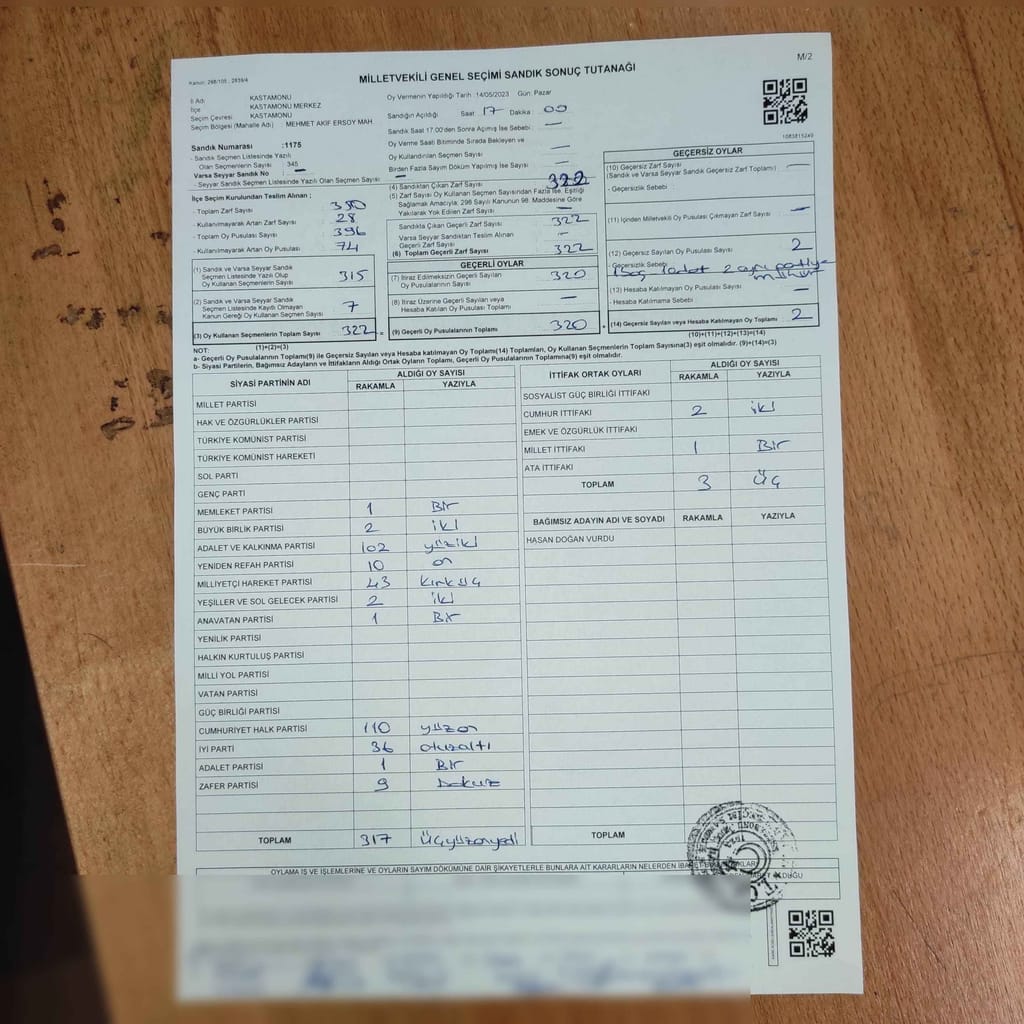 M/2
Kanun: 298/105 , 2839/4
MİLLETVEKİLİ GENEL SEÇİMİ SANDIK SONUÇ TUTANAĞI
İl Adı KASTAMONU
İlçe KASTAMONU MERKEZ
Seçim Çevresi KASTAMONU
Seçim Bölgesi (Mahalle Adı) MEHMET AKİF ERSOY MAH.
Oy Vermenin Yapıldığı Tarih : 14/05/2023 Gün: Pazar
Sandığın Açıldığı Saat : 17 Dakika : 00
Sandık Saat 17.00'den Sonra Açımış İse Sebebi : —
Oy Verme Saati Bitiminde Sırada Bekleyen ve
Oy Kullandırılan Seçmen Sayısı —
Birden Fazla Sayım Döküm Yapılmış İse Sayısı —
1083815249
Sandık Numarası :1175
- Sandık Seçmen Listesinde Yazılı
Olan Seçmenlerin Sayısı : 345
Varsa Seyyar Sandık No : —
- Seyyar Sandık Seçmen Listesinde Yazılı Olan Seçmen Sayısı : —
İlçe Seçim Kurulundan Teslim Alınan ;
- Toplam Zarf Sayısı : 350
- Kullanılmayarak Artan Zarf Sayısı : 28
- Toplam Oy Pusulası Sayısı : 396
- Kullanılmayarak Artan Oy Pusulası : 74
(1) Sandık ve Varsa Seyyar Sandık
Seçmen Listesinde Yazılı Olup
Oy Kullanan Seçmenlerin Sayısı 315
(2) Sandık ve Varsa Seyyar Sandık
Seçmen Listesinde Kayıtlı Olmayan
Kanun Gereği Oy Kullanan Seçmen Sayısı 7
(3) Oy Kullanan Seçmenlerin Toplam Sayısı 322
(1)+(2)=(3)
(4) Sandıktan Çıkan Zarf Sayısı 322
(5) Zarf Sayısı Oy Kullanan Seçmen Sayısından Fazla İse, Eşitliği
Sağlamak Amacıyla; 298 Sayılı Kanunun 98. Maddesine Göre
Yakılarak Yok Edilen Zarf Sayısı —
Sandıkta Çıkan Geçerli Zarf Sayısı 322
Varsa Seyyar Sandıktan Teslim Alınan
Geçerli Zarf Sayısı —
(6) Toplam Geçerli Zarf Sayısı 322
GEÇERLİ OYLAR
(7) İtiraz Edilmeksizin Geçerli Sayılan
Oy Pusulasının Sayısı 320
(8) İtiraz Üzerine Geçerli Sayılan veya
Hesaba Katılan Oy Pusulası Toplamı —
(9) Geçerli Oy Pusulalarının Toplamı 320
GEÇERSİZ OYLAR
(10) Geçersiz Zarf Sayısı —
(Sandık ve Varsa Seyyar Sandık Geçersiz Zarf Toplamı)
- Geçersizlik Sebebi :
(11) İçinden Milletvekili Oy Pusulası Çıkmayan Zarf Sayısı —
(12) Geçersiz Sayılan Oy Pusulası Sayısı 2
- Geçersizlik Sebebi : 1 Boş 1 adet 2 ayrı partiye
mühür
(13) Hesaba Katılmayan Oy Pusulası Sayısı —
- Hesaba Katılmama Sebebi :
(14) Geçersiz Sayılan veya Hesaba Katılmayan Oy Toplamı 2
(10)+(11)+(12)+(13)=(14)
NOT:
a- Geçerli Oy Pusulalarının Toplamı(9) ile Geçersiz Sayılan veya Hesaba katılmayan Oy Toplamı(14) Toplamları, Oy Kullanan Seçmenlerin Toplam Sayısına(3) eşit olmalıdır. (9)+(14)=(3)
b- Siyasi Partilerin, Bağımsız Adayların ve İttifakların Aldığı Ortak Oyların Toplamı, Geçerli Oy Pusulalarının Toplamına(9) eşit olmalıdır.
SİYASİ PARTİNİN ADI ALDIĞI OY SAYISI
RAKAMLA YAZIYLA
MİLLET PARTİSİ
HAK VE ÖZGÜRLÜKLER PARTİSİ
TÜRKİYE KOMÜNİST PARTİSİ
TÜRKİYE KOMÜNİST HAREKETİ
SOL PARTİ
GENÇ PARTİ
MEMLEKET PARTİSİ 1 Bir
BÜYÜK BİRLİK PARTİSİ 2 iki
ADALET VE KALKINMA PARTİSİ 102 yüziki
YENİDEN REFAH PARTİSİ 10 on
MİLLİYETÇİ HAREKET PARTİSİ 43 Kırküç
YEŞİLLER VE SOL GELECEK PARTİSİ 2 iki
ANAVATAN PARTİSİ 1 Bir
YENİLİK PARTİSİ
HALKIN KURTULUŞ PARTİSİ
MİLLİ YOL PARTİSİ
VATAN PARTİSİ
GÜÇ BİRLİĞİ PARTİSİ
CUMHURİYET HALK PARTİSİ 110 yüzon
İYİ PARTİ 36 otuzaltı
ADALET PARTİSİ 1 Bir
ZAFER PARTİSİ 9 Dokuz
TOPLAM 317 Üçyüzonyedi
İTTİFAK ORTAK OYLARI ALDIĞI OY SAYISI
RAKAMLA YAZIYLA
SOSYALİST GÜÇ BİRLİĞİ İTTİFAKI
CUMHUR İTTİFAKI 2 iki
EMEK VE ÖZGÜRLÜK İTTİFAKI
MİLLET İTTİFAKI 1 Bir
ATA İTTİFAKI
TOPLAM 3 Üç
BAĞIMSIZ ADAYIN ADI VE SOYADI RAKAMLA YAZIYLA
HASAN DOĞAN VURDU
TOPLAM
OYLAMA İŞ VE İŞLEMLERİNE VE OYLARIN SAYIM DÖKÜMÜNE DAİR ŞİKAYETLERLE BUNLARA AİT KARARLARIN NELERDEN